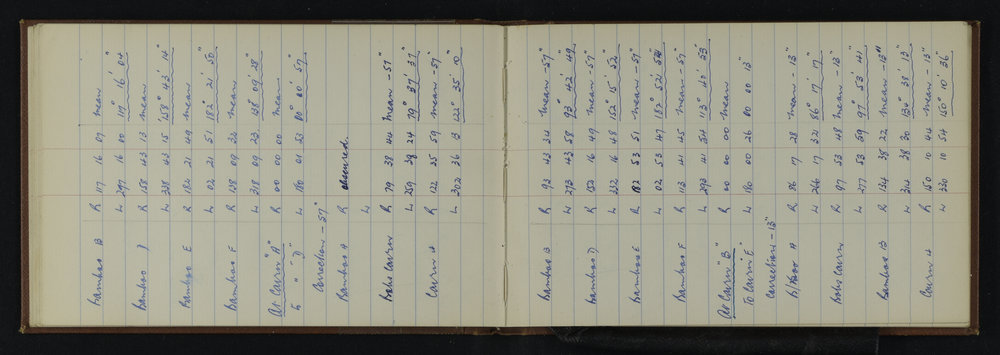 Bamboo B R 117 16 09 mean
L 297 16 00 111° 16' 04"
Bamboo D R 158 43 13 mean
L 338 43 15 158° 43' 14"
Bamboo E R 182 21 49 mean
L 02 21 51 182° 21' 50"
Bamboo F R 138 09 32 mean
L 318 09 23 138° 09' 28"
At Cairn "A" R 00 00 00 mean
to " "D" L 180 01 53 00° 00' 57"
Correction - 57"
Bamboo A R obscured
L
Bobs Cairn R 79 38 44 mean - 57"
L 259 38 24 79° 37' 37"
Cairn H R 122 25 59 mean - 57"
L 302 36 13 122° 35' 10"
Bamboo B R 93 43 34 mean - 57"
L 273 43 58 93° 42' 49"
Bamboo D R 152 16 49 mean - 57"
L 332 16 48 152° 15' 52"
Bamboo E R 182 53 51 mean - 57"
L 02 53 47 182° 52' 52"
Bamboo F R 113 41 45 mean - 57"
L 293 41 54 113° 40' 53"
At Cairn "B" R 00 00 00 mean
To Cairn E" L 180 00 26 00 00' 13"
Correction - 13"
B/boo A R 86 17 28 mean - 13"
L 266 17 32 86° 17' 17"
Bobs Cairn R 97 53 48 mean - 13"
L 277 53 59 97° 53' 41"
Bamboo B R 134 38 22 mean - 13"
L 314 38 30 134° 38' 13"
Cairn H R 150 10 44 mean - 13"
L 330 10 54 150° 10' 36"